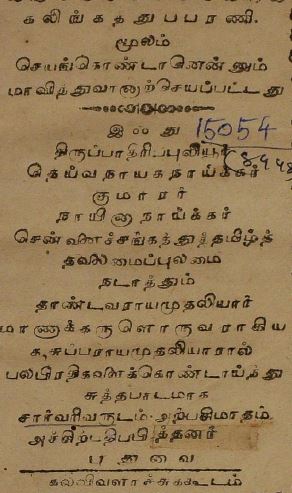 கலிங்கத்துபபரணி.
மூலம்
செயங்கொண்டானென்னும்
மாவித்துவானாற்செயப்பட்டது
இஃது
15054
திருப்பாதிரிப்புலியூர்
தெய்வநாயகநாய்க்கர்
குமாரர்
நாயினாநாய்க்கர்
சென்னைச்சங்கத்துத்தமிழ்த்
தலைமைப்புலமை
நடாத்தும்
தாண்டவராயமுதலியார்
மாணாக்கருளொருவராகிய
சுப்பராயமுதலியாரால்
பலபிரதிகளைக்கொண்டாய்ந்து
சுத்தபாடமாக
சார்வரிவருடம் அற்பசிமாதம்
அச்சிற்பதிப்பித்தனர்
புதுவை
கல்விவளாச்சுக்கூடம்